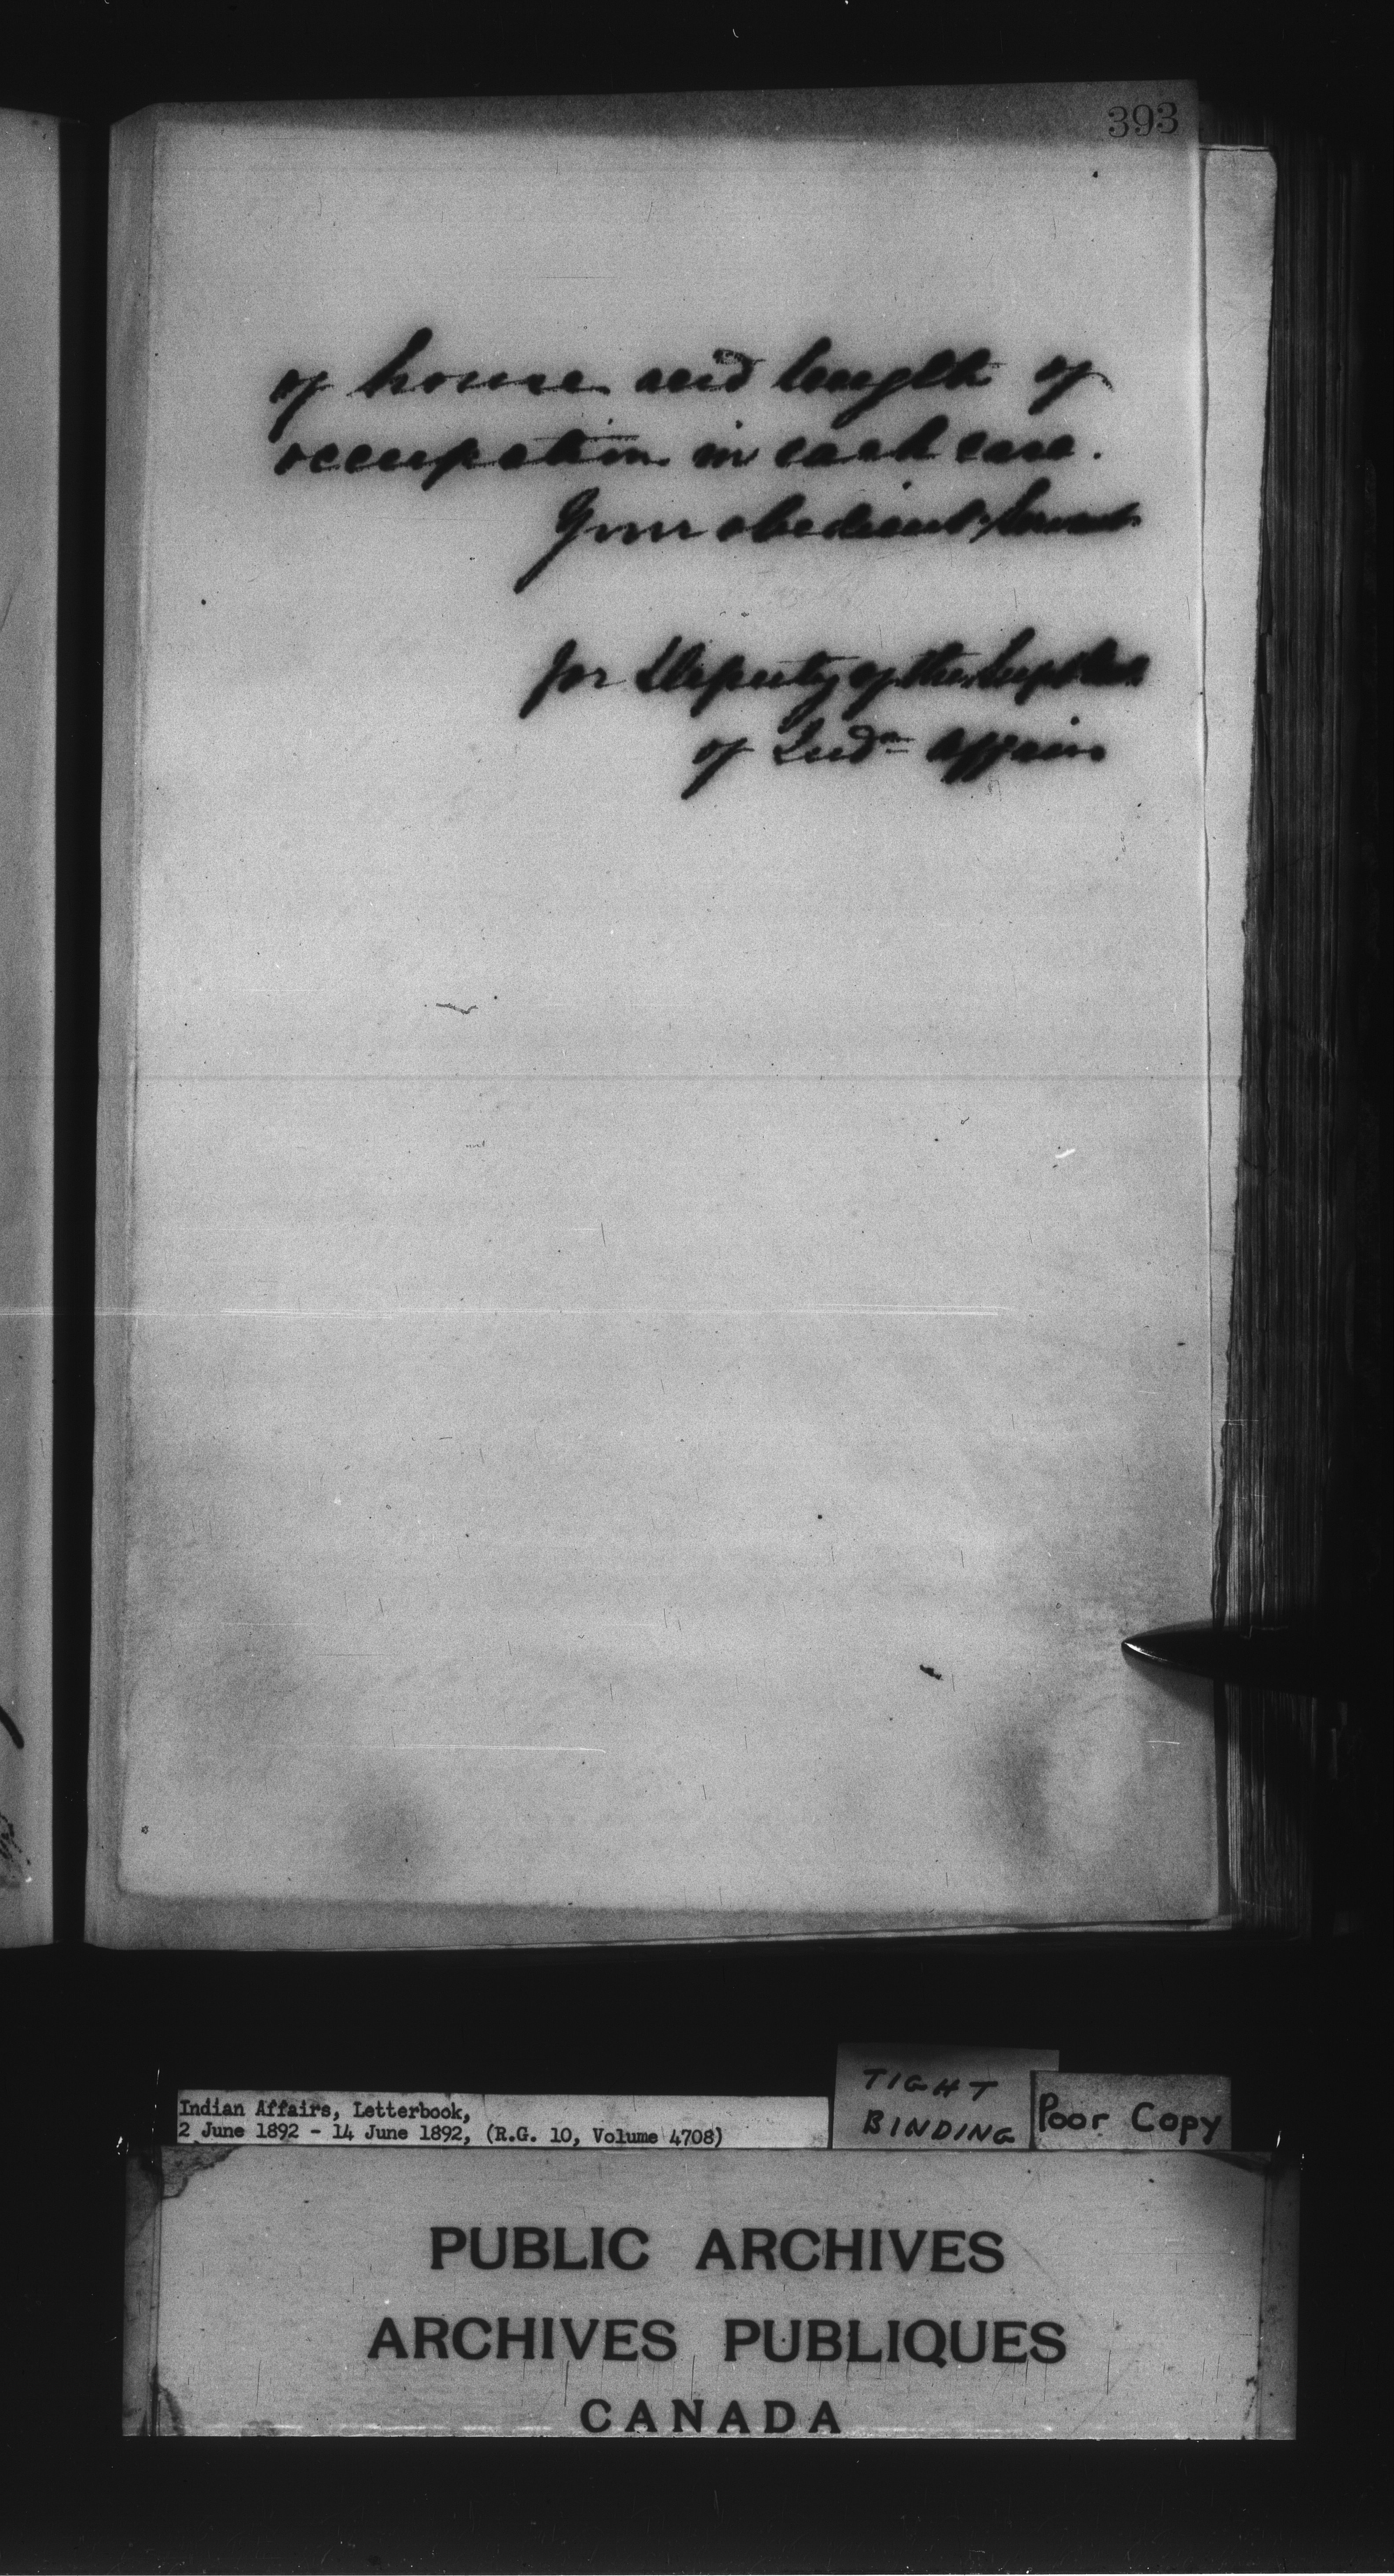 393
of house and length of
occupation in each case.
Your obedient Servant
for Deputy of the Supt
of Indn Affairs
Indian Affairs, Letterbook,
2 June 1892 - 14 June 1892, (R.G. 10, Volume 4708)
TIGHT
BINDING
Poor Copy
PUBLIC ARCHIVES
ARCHIVES PUBLIQUES
CANADA